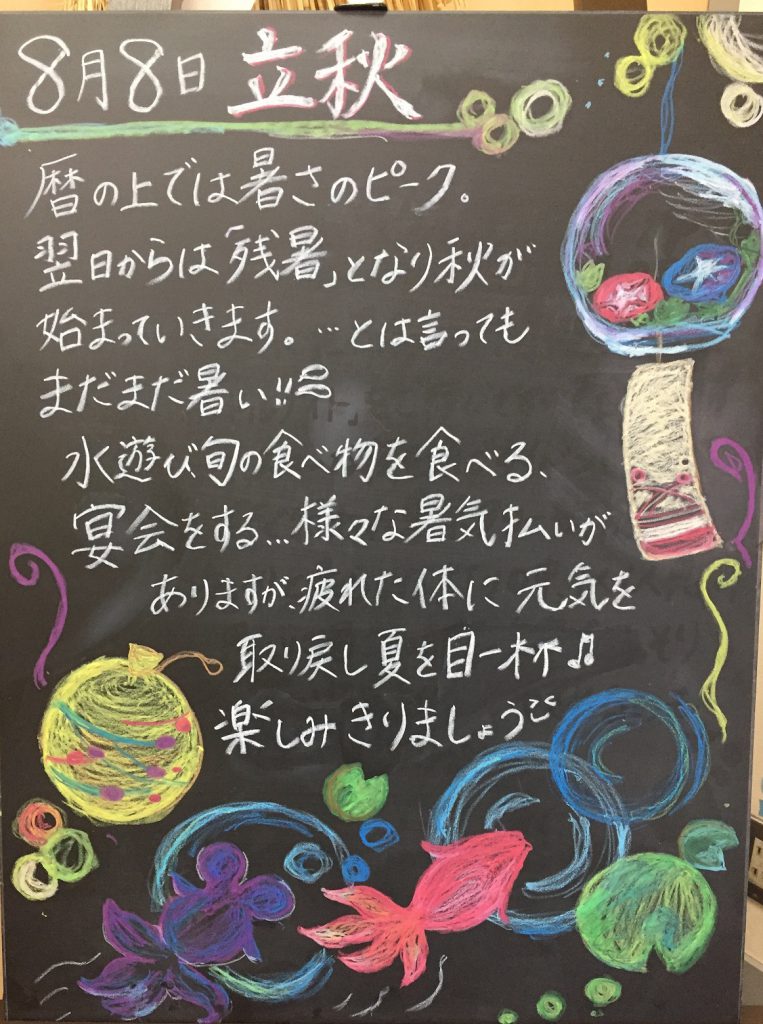 8月8日 立秋
暦の上では暑さのピーク。
翌日からは「残暑」となり秋が
始まっていきます。…とは言っても
まだまだ暑い!!
水遊び、旬の食べ物を食べる、
宴会をする…様々な暑気払いが
ありますが、疲れた体に元気を
取り戻し夏を目一杯♫
楽しみきりましょう